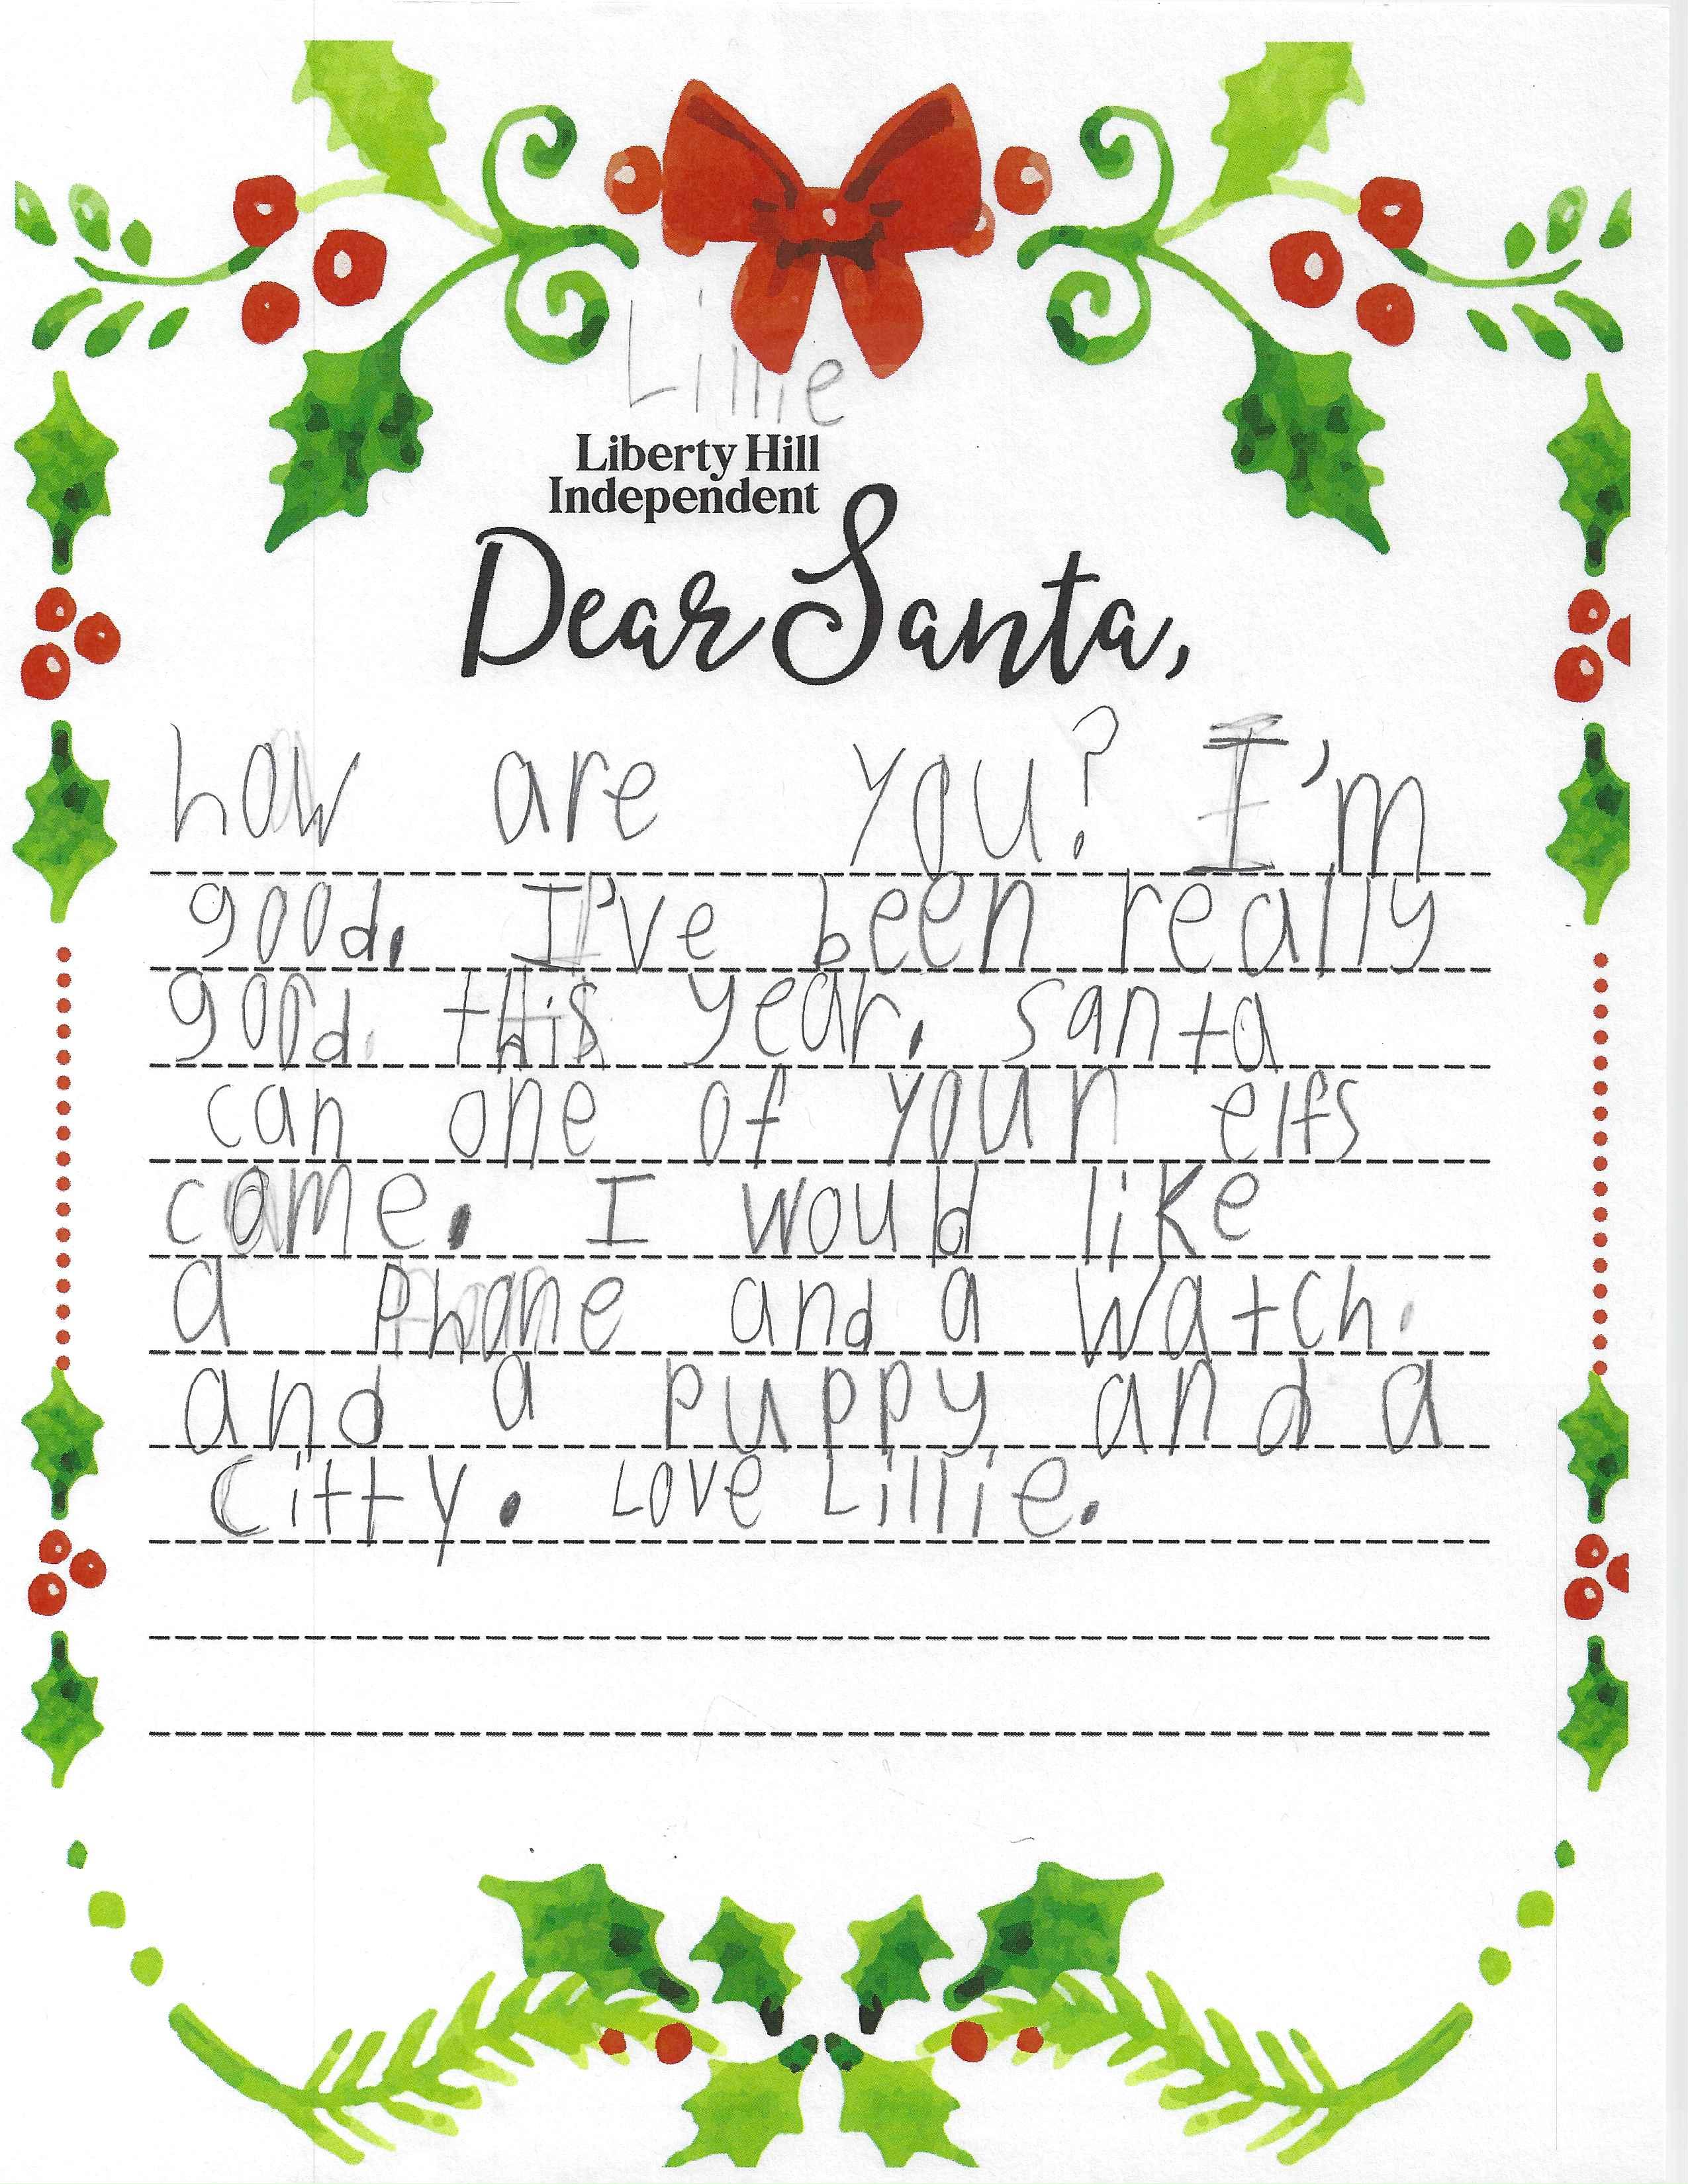 Lillie
Liberty Hill
Independent
Dear Santa,
how are you? I'm
good. I've been really
good this year. santa
can one of your elfs
come. I would like
a Phone and a watch.
and a puppy and a
citty. Love Lillie.